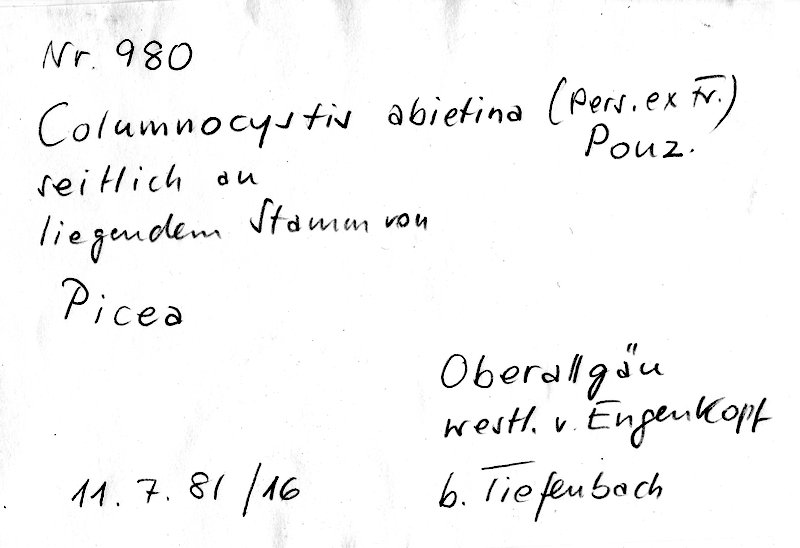 Nr. 980
Columnocystis abietina (Pers. ex Fr.)
Pouz.
seitlich an
liegendem Stamm von
Picea
Oberallgäu
westl. v. Engenkopf
b. Tiefenbach
11. 7. 81 /16